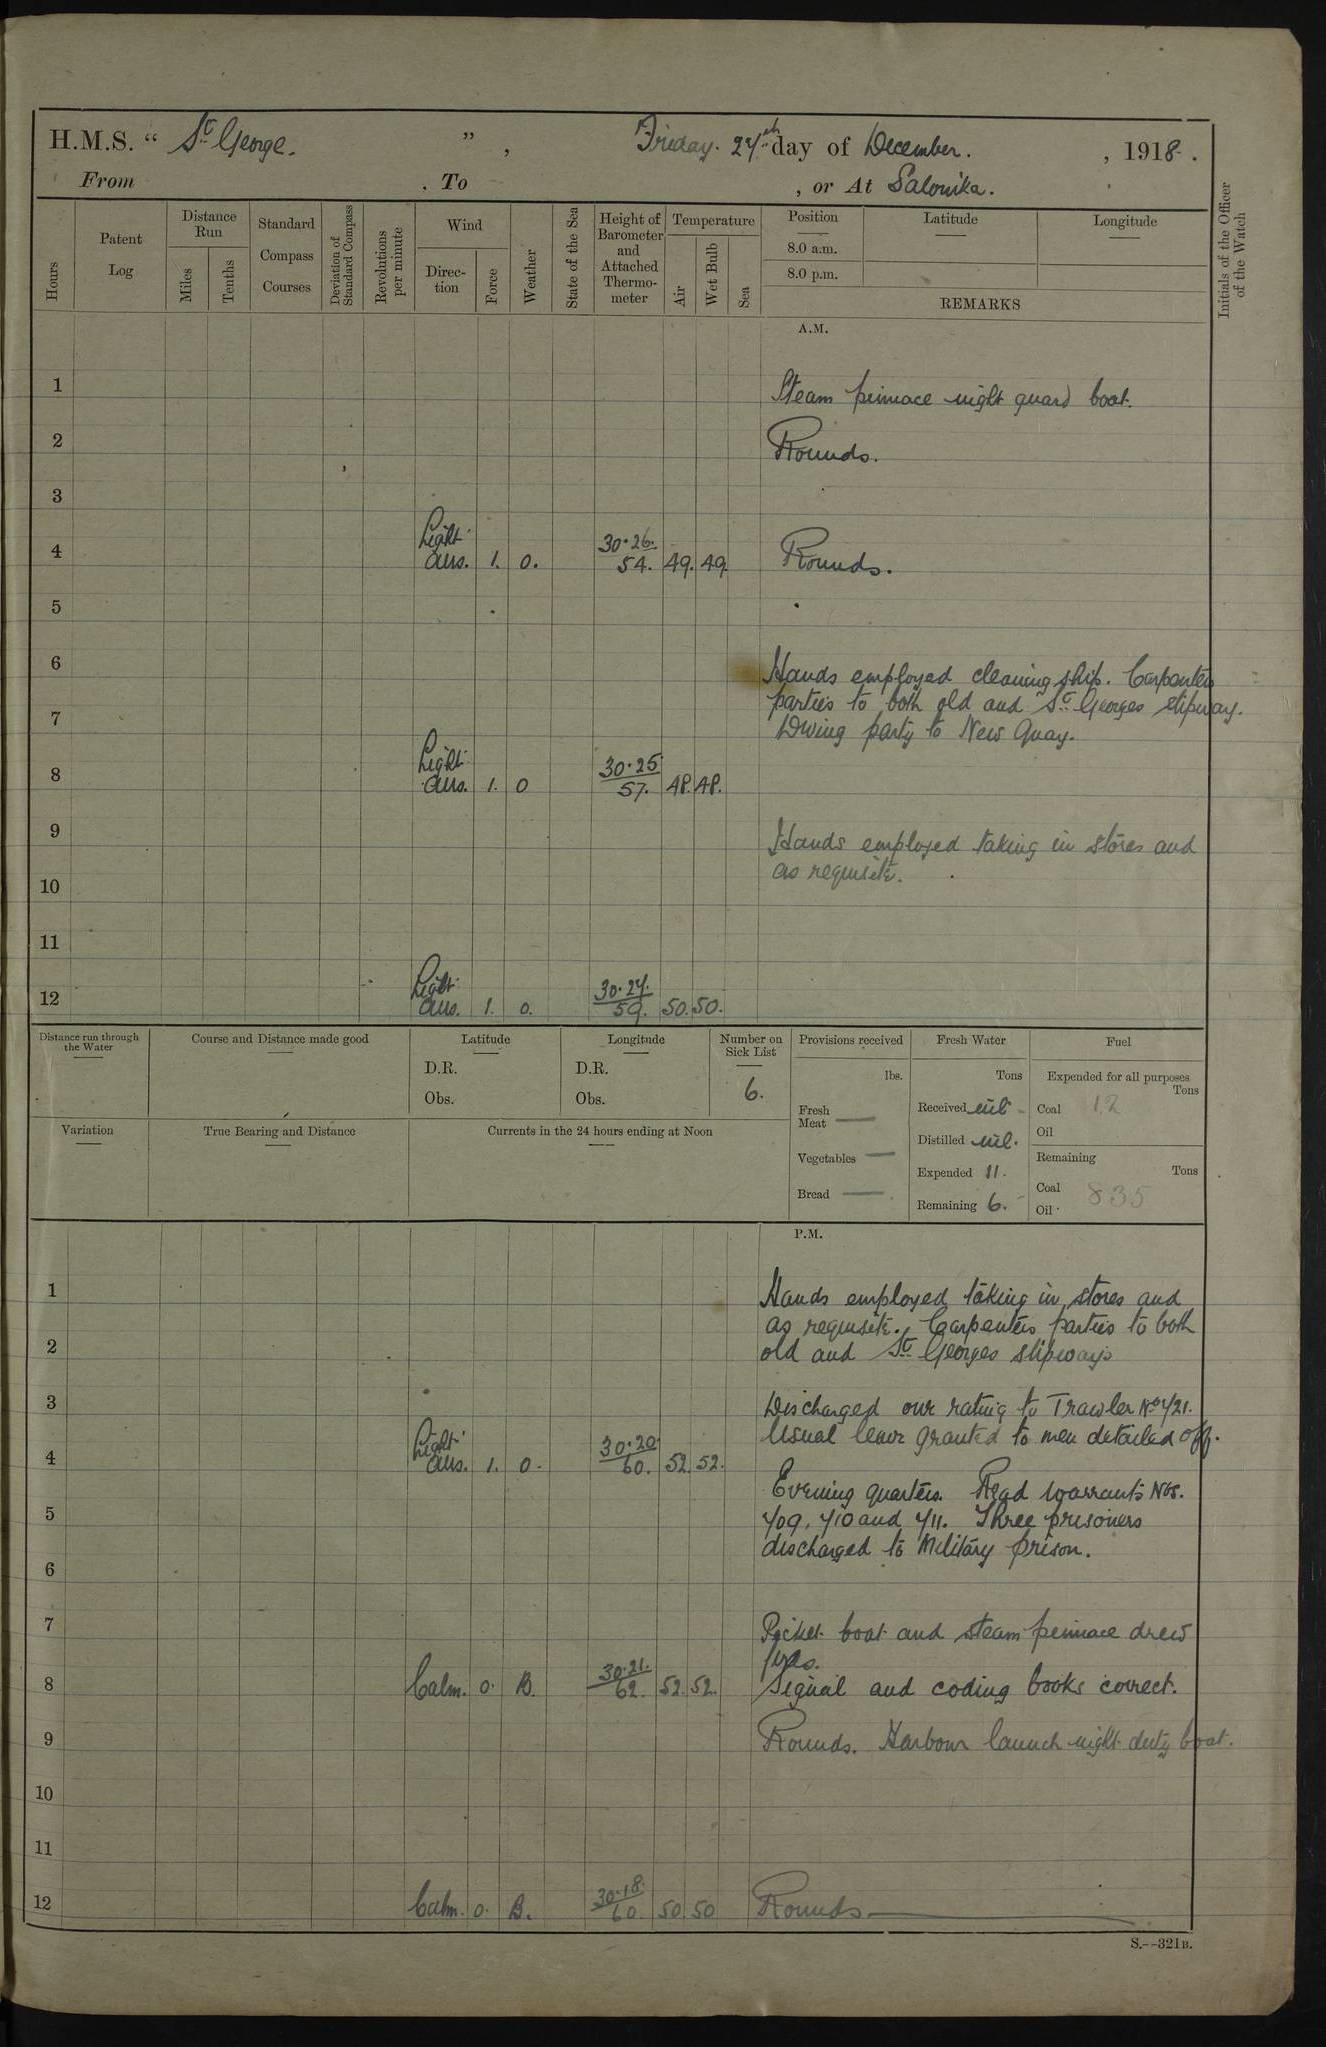 H.M.S. “ St George. ” , Friday. 27th day of December. , 1918.
From . To , or At Salonika.
Hours
Patent Log
Distance Run
Miles
Tenths
Standard Compass Courses
Deviation of Standard Compass
Revolutions per minute
Wind
Direc-tion
Force
Weather
State of the Sea
Height of Barometer and Attached Thermo-meter
Temperature
Air
Wet Bulb
Sea
Position
8.0 a.m.
8.0 p.m.
Latitude
Longitude
REMARKS
Initials of the Officer of the Watch
A.M.
1 Steam pinnace night guard boat.
2 Rounds.
3
4 Light airs. 1. o. 30.26. 54. 49. 49. Rounds.
5
6 Hands employed cleaning ship. Carpenters
parties to both old and St Georges slipway.
7 Diving party to New Quay.
8 Light airs. 1. o 30.25 57. 48. 48.
9 Hands employed taking in stores and
10 as requisite.
11
12 Light airs. 1. o. 30.27. 59. 50. 50.
Distance run through the Water
Course and Distance made good
Latitude
D.R.
Obs.
Longitude
D.R.
Obs.
Number on Sick List
6.
Provisions received
lbs.
Fresh Meat —
Vegetables —
Bread —
Fresh Water
Tons
Received nil
Distilled nil.
Expended 11.
Remaining 6.
Fuel
Expended for all purposes
Tons
Coal 12
Oil
Remaining
Tons
Coal 835
Oil
Variation
True Bearing and Distance
Currents in the 24 hours ending at Noon
P.M.
1 Hands employed taking in stores and
as requisite. Carpenters parties to both
2 old and St Georges slipways
3 Discharged one rating to Trawler No
Usual leave granted to men detailed off.
4 Light airs. 1. o. 30.20 60. 52. 52.
Evening quarters. Read warrants Nos.
5 709, 710 and 711. Three prisoners
discharged to Military prison.
6
7 Picket boat and steam pinnace drew
fires.
8 Calm. 0. B. 30.21. 62. 52. 52. Signal and coding books correct.
9 Rounds. Harbour launch night duty boat.
10
11
12 Calm. 0. B. 30.18. 60. 50. 50 Rounds
S.--321B.